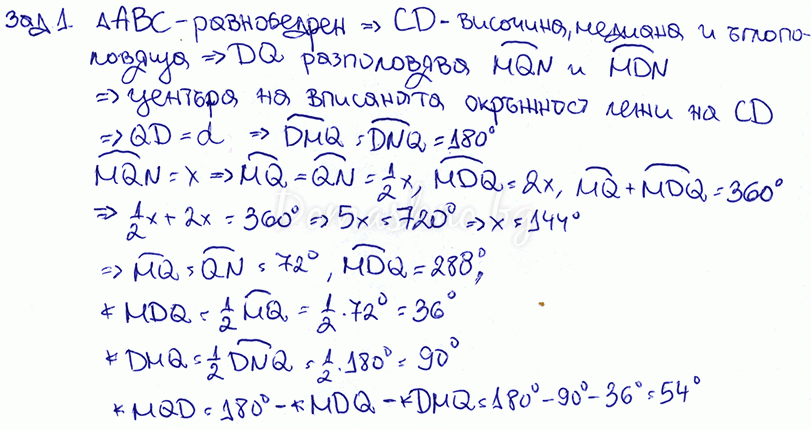 Зад 1. ΔABC - равнобедрен ⇒ CD - височина, медиана и ъглопо-
ловяща ⇒ DQ разполовява ⌢MQN и ⌢MDN
⇒ центъра на вписаната окръжност лежи на CD
⇒ QD = d ⇒ ⌢DMQ = ⌢DNQ = 180°
⌢MQN = x ⇒ ⌢MQ = ⌢QN = 1/2x, ⌢MDQ = 2x, ⌢MQ + ⌢MDQ = 360°
⇒ 1/2x + 2x = 360° ⇒ 5x = 720° ⇒ x = 144°
⇒ ⌢MQ = ⌢QN = 72°, ⌢MDQ = 288°;
∢MDQ = 1/2 ⌢MQ = 1/2 . 72° = 36°
∢DMQ = 1/2 ⌢DNQ = 1/2 . 180° = 90°
∢MQD = 180° - ∢MDQ - ∢DMQ = 180° - 90° - 36° = 54°